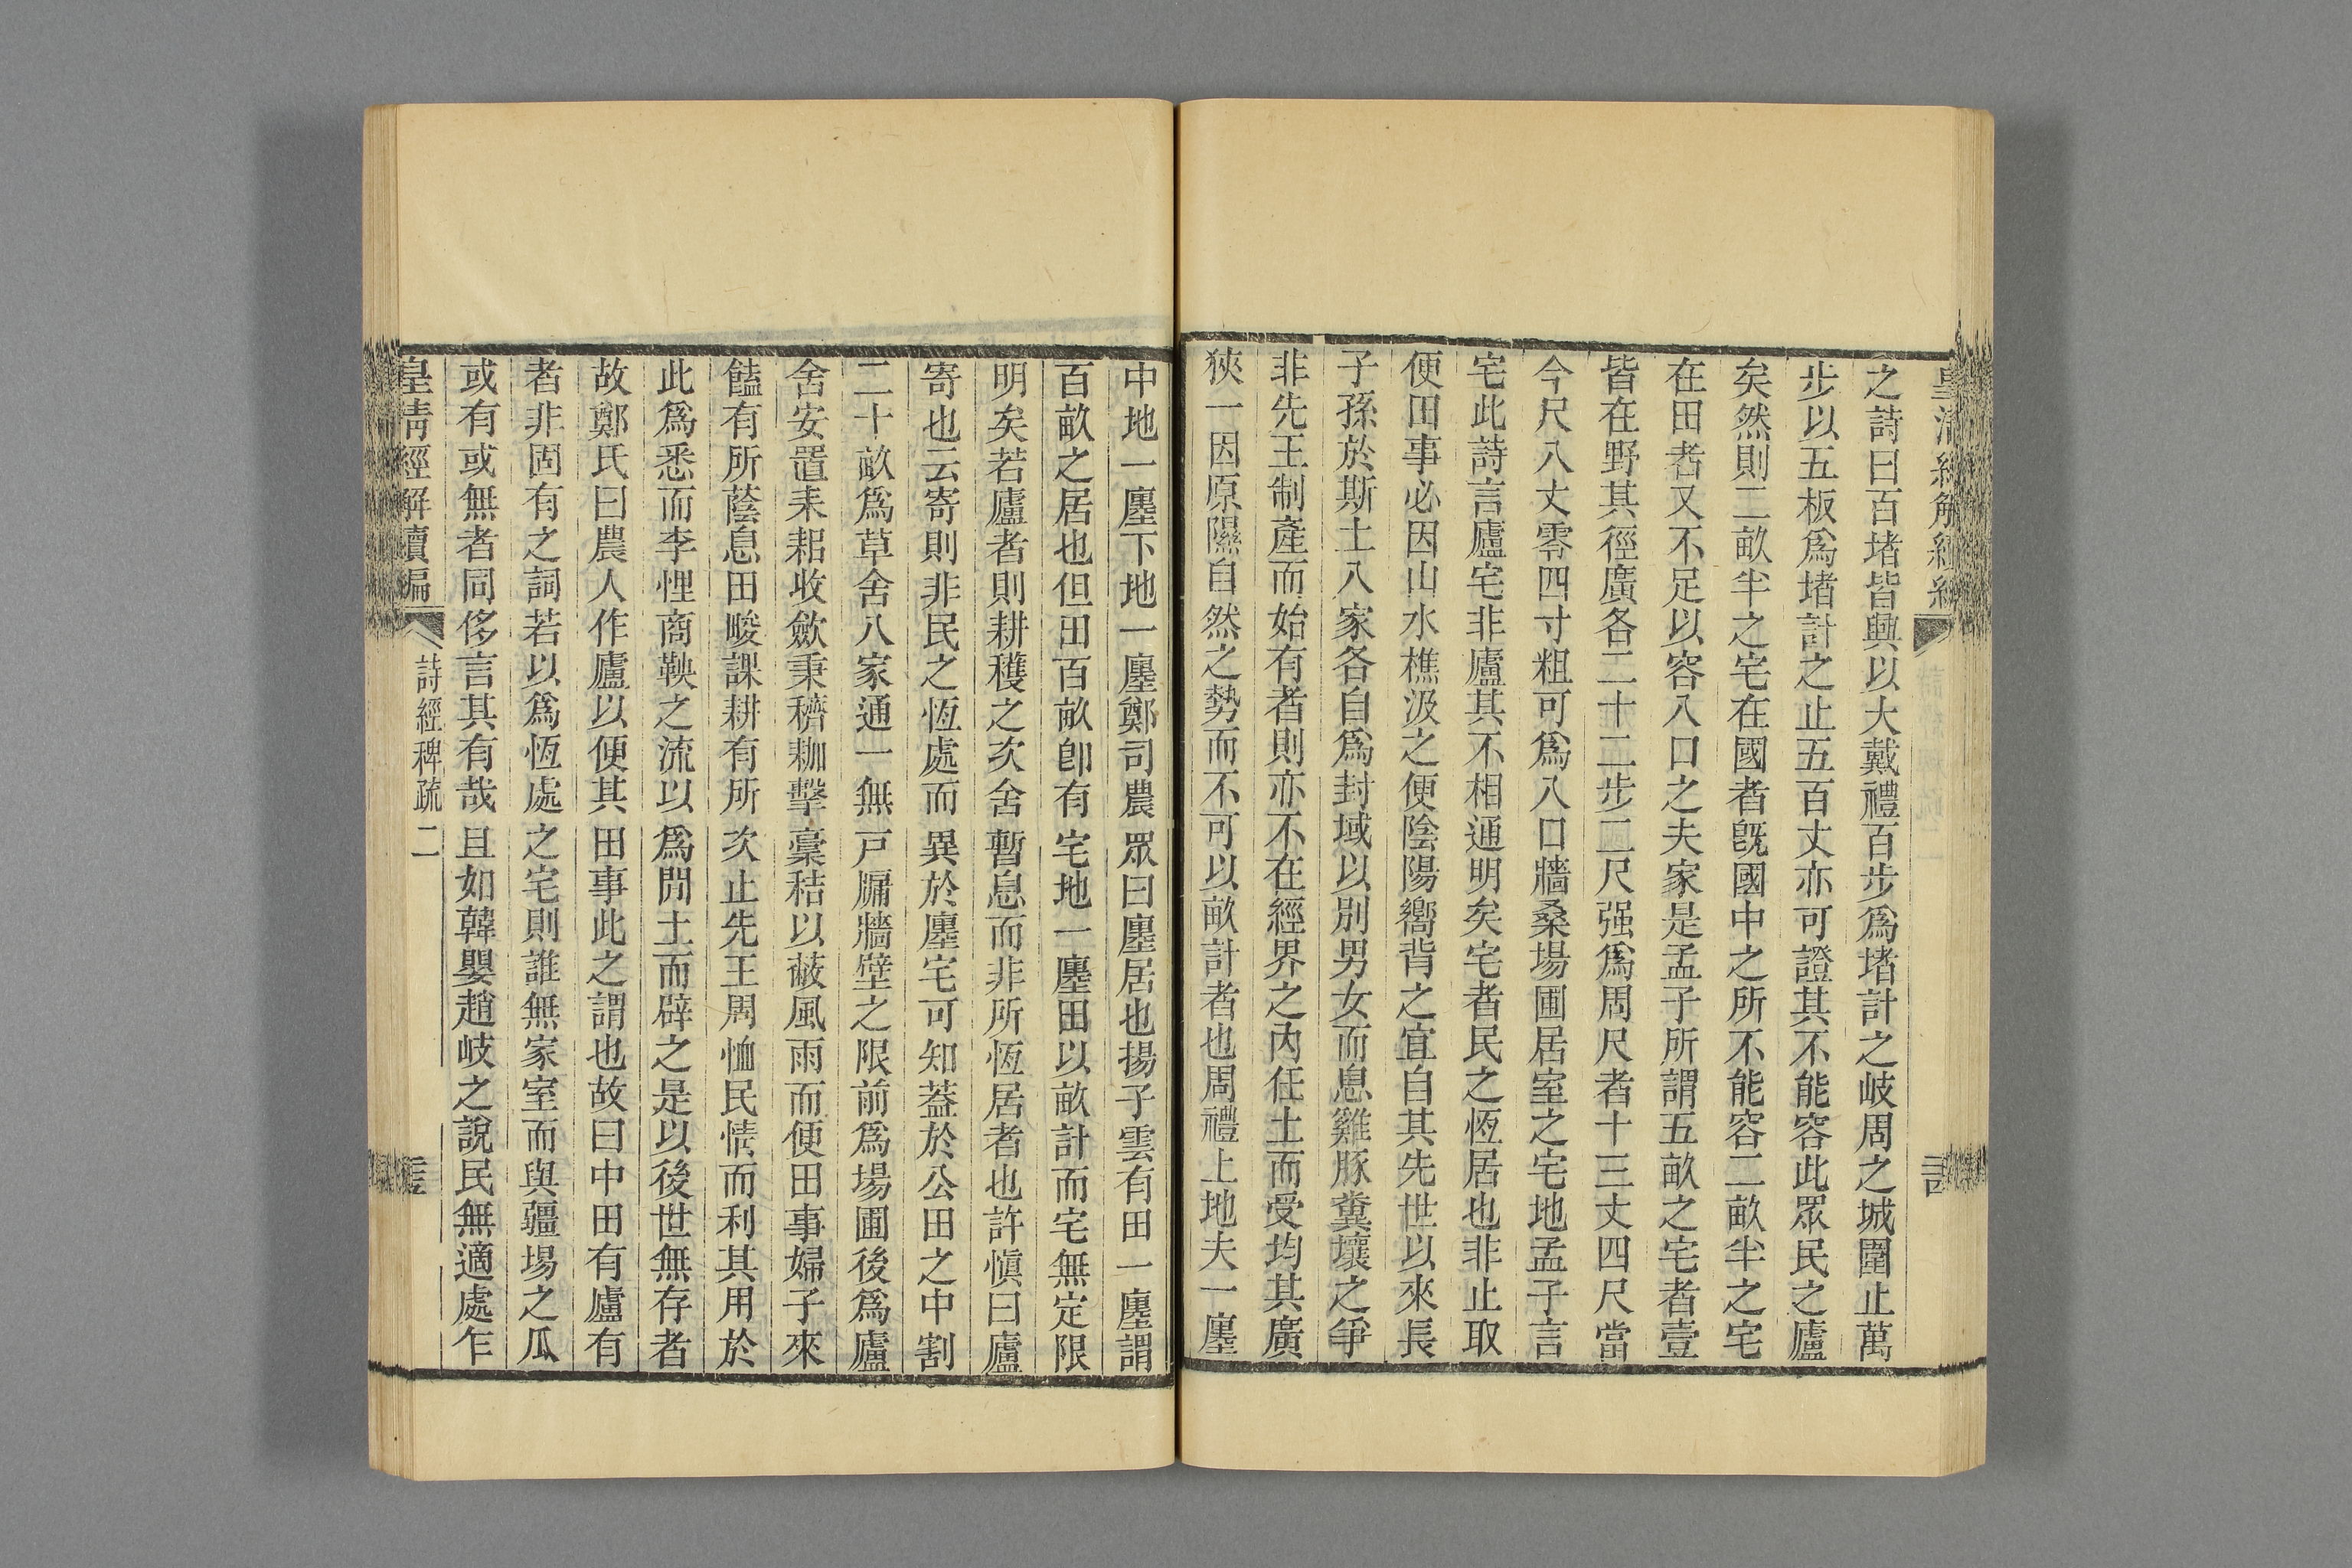 之詩曰百堵皆興以大戴禮百步爲堵計之岐周之城圍止萬
步以五板爲堵計之止五百丈亦可證其不能容此眾民之廬
矣然則二畝半之宅在國者旣國中之所不能容二畝半之宅
在田者又不足以容八口之夫家是孟子所謂五畝之宅者壹
皆在野其徑廣各二十二步二尺强爲周尺者十三丈四尺當
今尺八丈零四寸粗可爲八口牆桑場圃居室之宅地孟子言
宅此詩言廬宅非廬其不相通明矣宅者民之恆居也非止取
便田事必因山水樵汲之便陰陽嚮背之宜自其先世以來長
子孫於斯土八家各自爲封域以別男女而息雞豚糞壤之爭
非先王制產而始有者則亦不在經界之內任土而受均其廣
狹一因原隰自然之勢而不可以畝計者也周禮上地夫一廛
中地一廛下地一廛鄭司農眾曰廛居也揚子雲有田一廛謂
百畝之居也但田百畝卽有宅地一廛田以畝計而宅無定限
明矣若廬者則耕穫之次舍暫息而非所恆居者也許愼曰廬
寄也云寄則非民之恆處而異於廛宅可知葢於公田之中割
二十畝爲草舍八家通一無戸牖牆壁之限前爲場圃後爲廬
舍安置耒耜收斂秉穧耞擊稾秸以蔽風雨而便田事婦子來
饁有所蔭息田畯課耕有所次止先王周恤民情而利其用於
此爲悉而李悝商鞅之流以爲閒土而辟之是以後世無存者
故鄭氏曰農人作廬以便其田事此之謂也故曰中田有廬有
者非固有之詞若以爲恆處之宅則誰無家室而與疆場之瓜
或有或無者同侈言其有哉且如韓嬰趙岐之說民無適處乍
皇清經解續編 詩經稗疏二